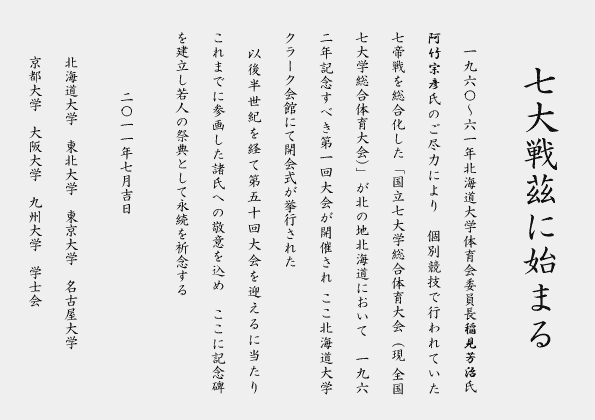 七大戦茲に始まる
一九六〇〜六一年北海道大学体育会委員長稲見芳治氏
阿竹宗彦氏のご尽力により　個別競技で行われていた
七帝戦を総合化した「国立七大学総合体育大会（現 全国
七大学総合体育大会）」が北の地北海道において　一九六
二年記念すべき第一回大会が開催され ここ北海道大学
クラーク会館にて開会式が挙行された
以後半世紀を経て第五十回大会を迎えるに当たり
これまでに参画した諸氏への敬意を込め　ここに記念碑
を建立し若人の祭典として永続を祈念する
二〇一一年七月吉日
北海道大学　東北大学　東京大学　名古屋大学
京都大学　大阪大学　九州大学　学士会